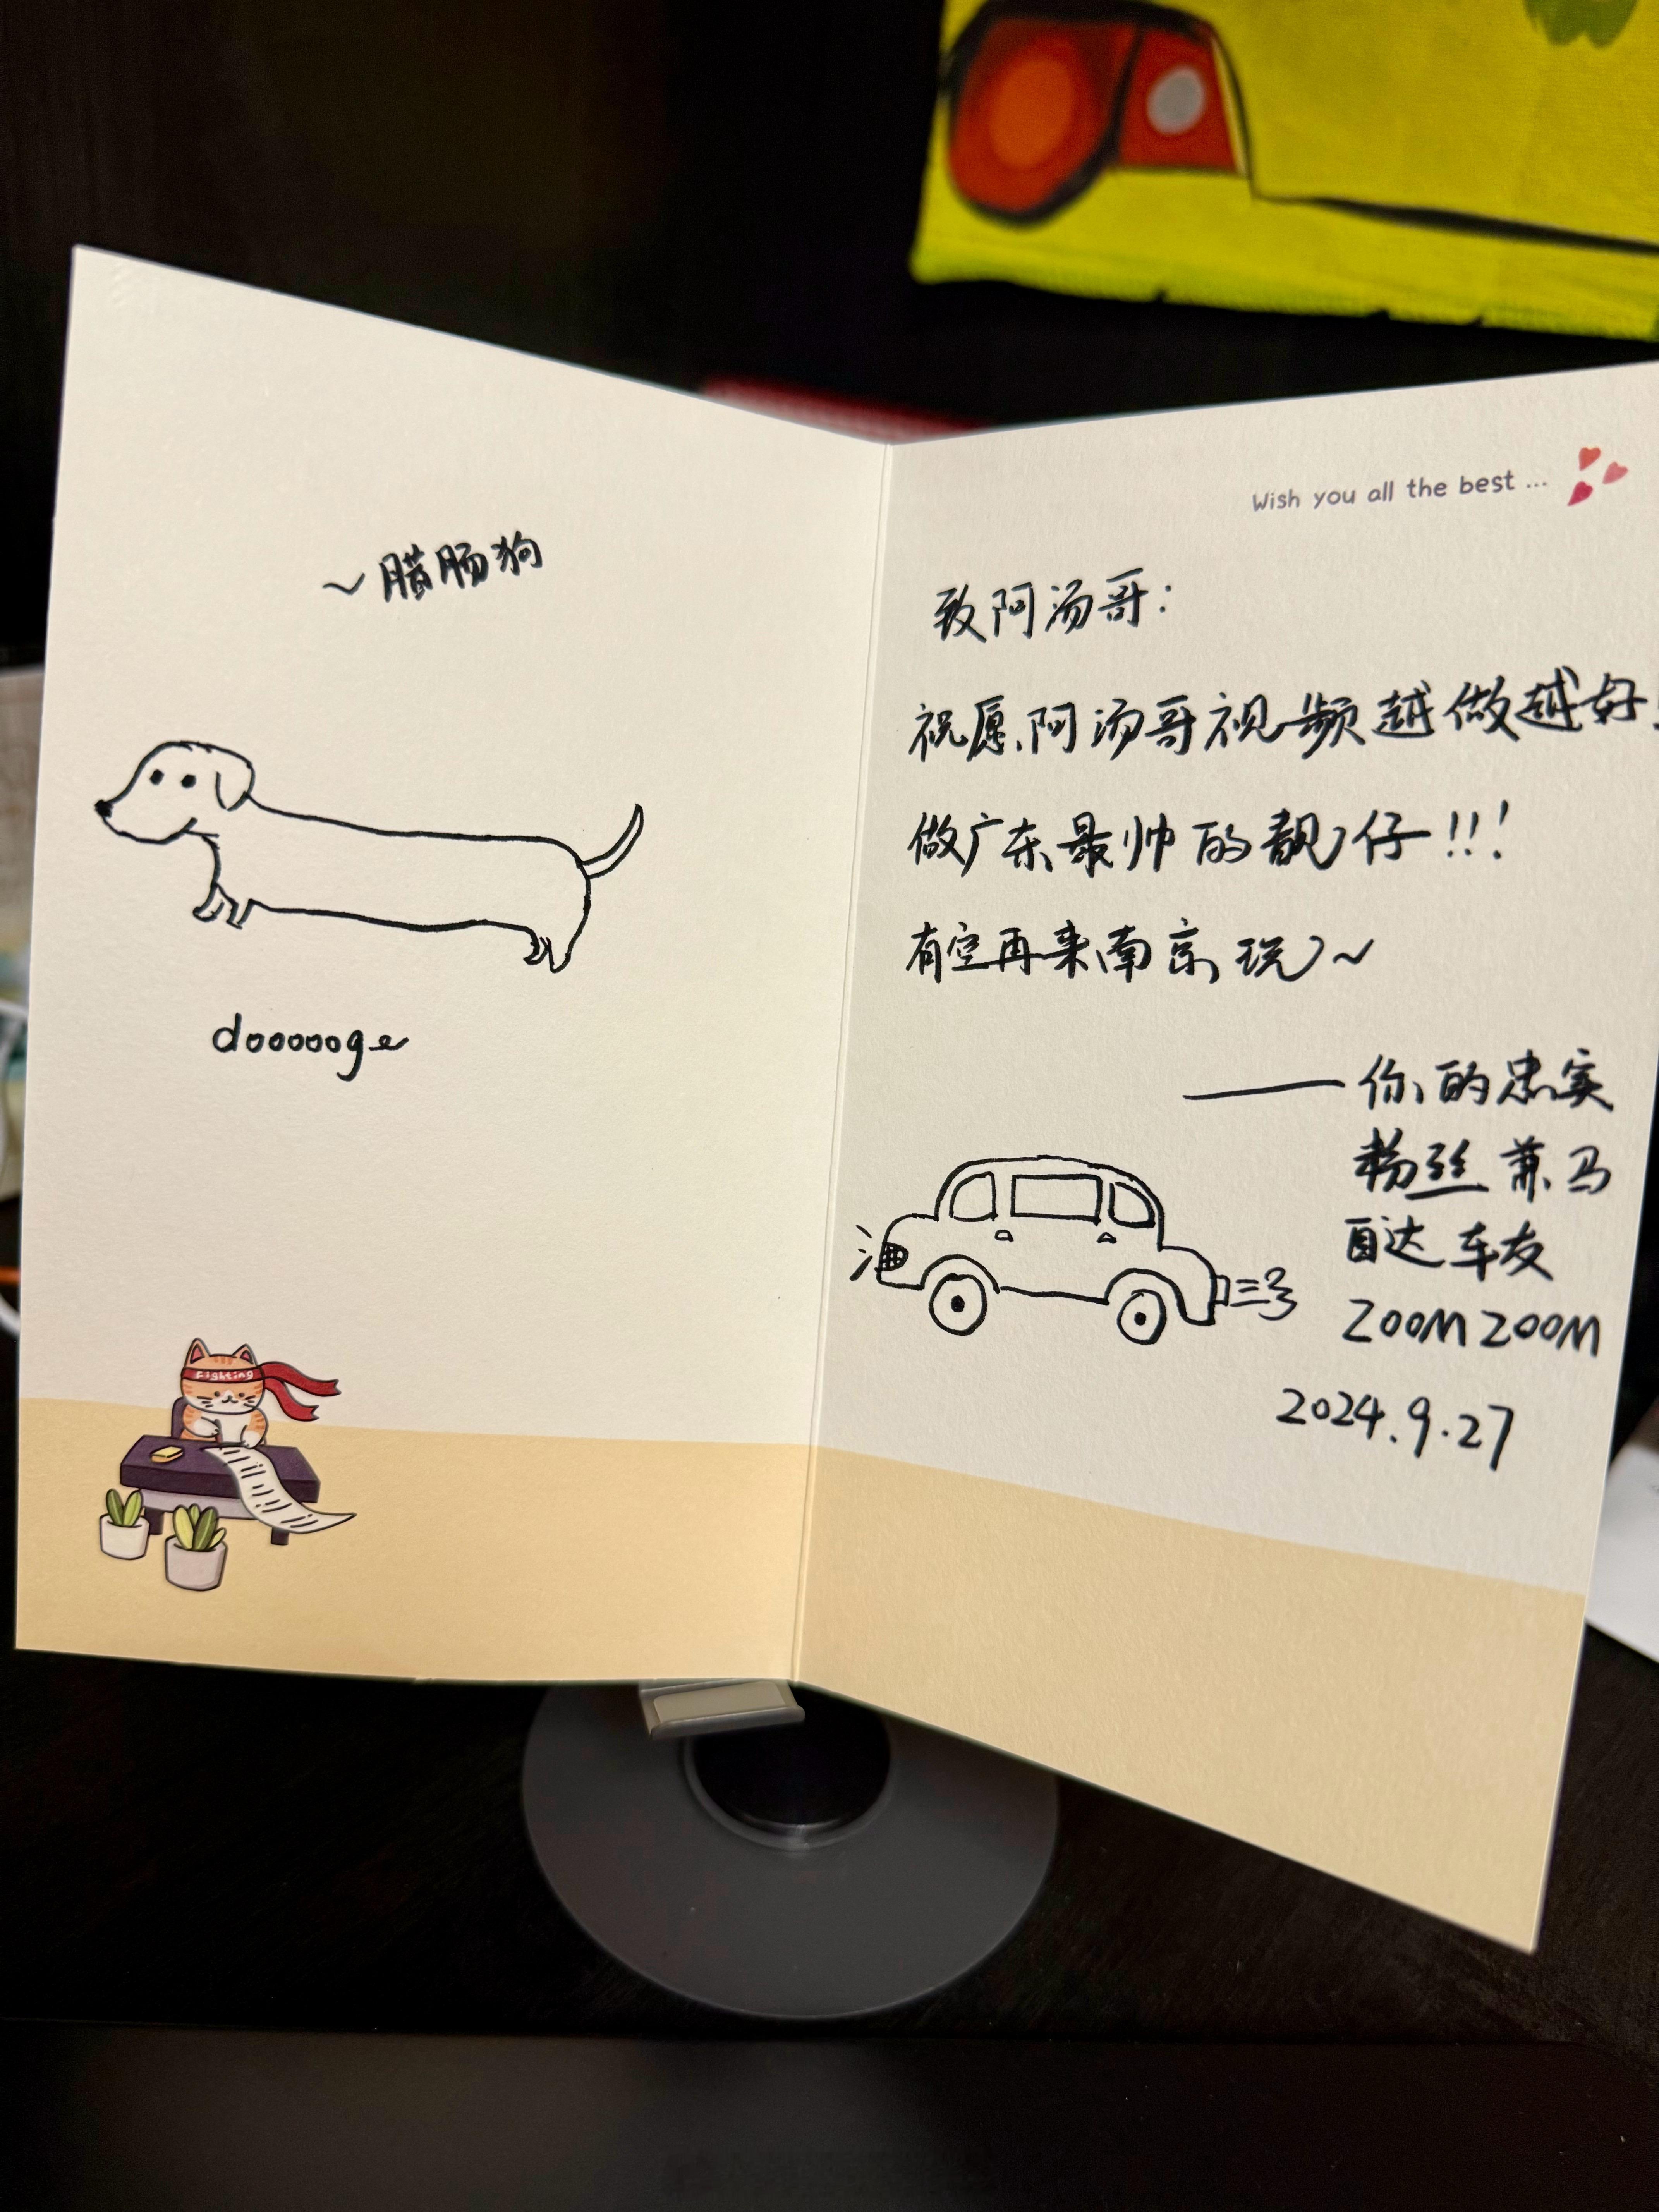 ~腊肠狗
doooooge
fighting
Wish you all the best ...
致阿汤哥:
祝愿阿汤哥视频越做越好!
做广东最帅的靓仔!!!
有空再来南京玩~
——你的忠实
粉丝兼马
自达车友
ZOOM ZOOM
2024.9.27